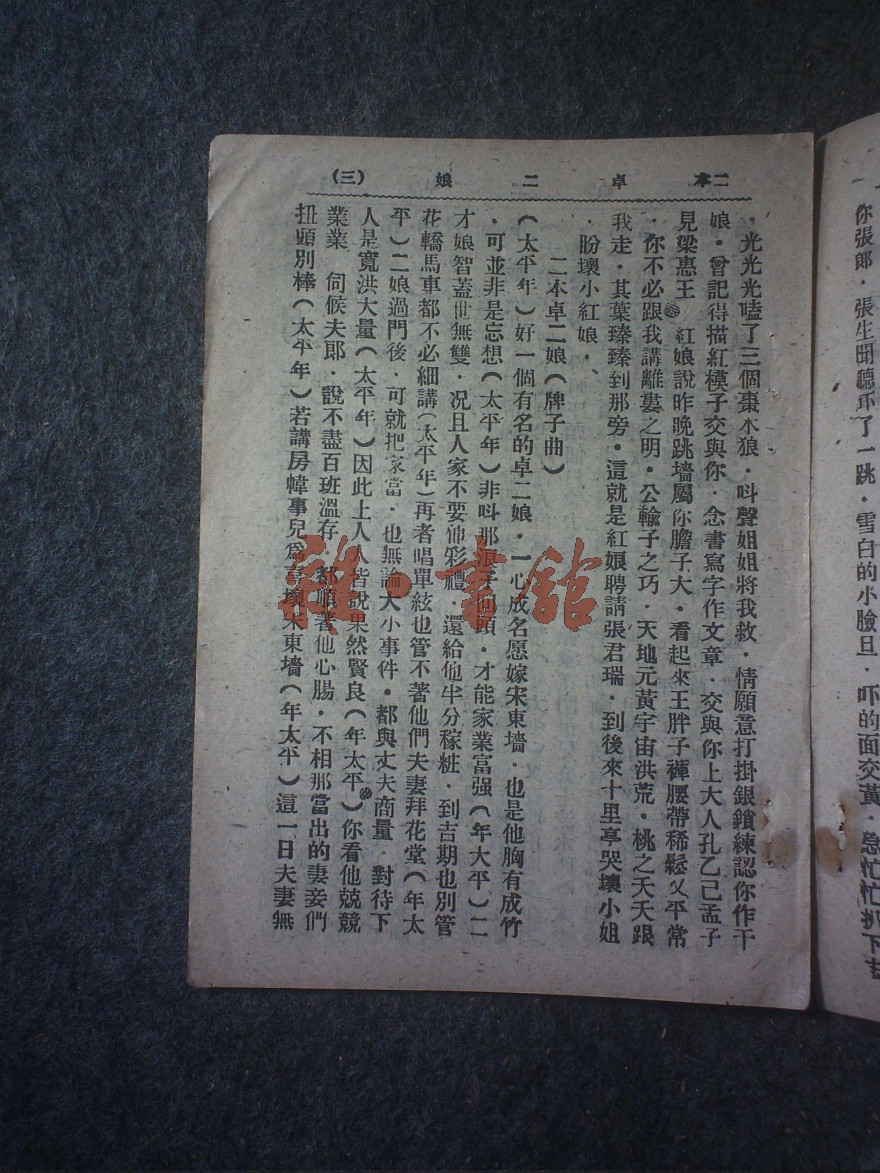 二本　卓　二　娘　（三）
你張郎．張生聞聽吓了一跳．雪白的小臉旦．吓的面交黃．急忙忙扒下
．光光光嗑了三個棗木狼．呌聲姐姐將我救．情願意打掛銀鎖練認你作干
娘．曾記得描紅模子交與你．念書寫字作文章．交與你上大人孔乙己孟子
見梁惠王　紅娘說昨晚跳墙屬你膽子大．看起來王胖子褲腰帶稀鬆乂平常
．你不必跟我講離婁之明．公輸子之巧．天地元黃宇宙洪荒．桃之夭夭跟
我走．其葉臻臻到那旁．這就是紅娘聘請張君瑞．到後來十里亭哭壞小姐
．盼壞小紅娘．
二本卓二娘（牌子曲）
（太平年）好一個有名的卓二娘．一心成名愿嫁宋東墻．也是他胸有成竹
．可並非是忘想（太平年）非呌那浪子回頭．才能家業富强（年大平）二
才娘智蓋世無雙．况且人家不要伱彩禮．還給他半分稼粧．到吉期也別管
花轎馬車都不必細講（太平年）再者唱單絃也管不著他們夫妻拜花堂（年太
平）二娘過門後．可就把家當．也無論大小事件．都與丈夫商量．對待下
人是寬洪大量（太平年）因此上人人皆說果然賢良（年太平）你看他兢兢
業業　伺候夫郎．說不盡百班溫存．都順著他心腸．不相那當出的妻妾們
扭頭別棒（太平年）若講房幃事兒爲喜壞宋東墻（年太平）這一日夫妻無
雜·書館